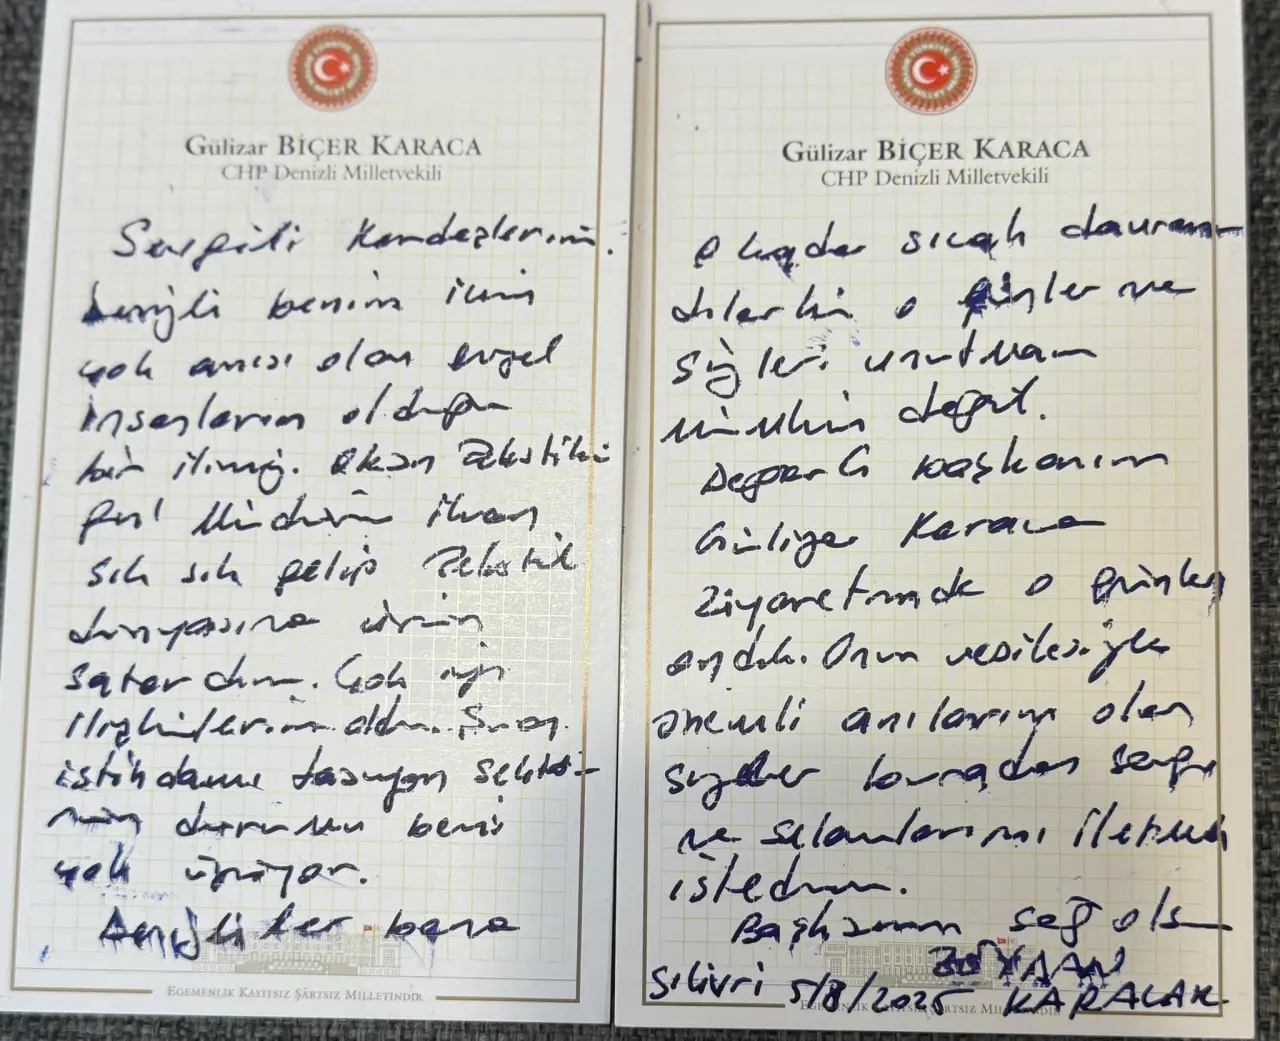 Gülizar BİÇER KARACA
CHP Denizli Milletvekili
Sevgili Kardeşlerim.
Denizli benim için
çok anısı olan güzel
insanların olduğu
bir ilimiz. Tekstilin
sık sık gelip Tekstil
dünyasına ürün
satardım. Çok iyi
ilişkilerim oldu. Şuan
istihdamı taşıyan sektö-
rün durumu beni
çok üzüyor.
Denizliler bana
EGEMENLİK KAYITSIZ ŞARTSIZ MİLLETİNDİR
Gülizar BİÇER KARACA
CHP Denizli Milletvekili
o kadar sıcak davran
dılar ki o günler ve
sizleri unutmam
mümkün değil.
Değerli Başkanım
Karaca
Ziyaretimde o günleri
andık. Onun vesilesiyle
önemli anılarım olan
sizlere buradan sevgi
ve selamlarımı iletmek
istedim.
Başkanım sağ olsun
KARALAR
Silivri 5/8/2025
EGEMENLİK KAYITSIZ ŞARTSIZ MİLLETİNDİR